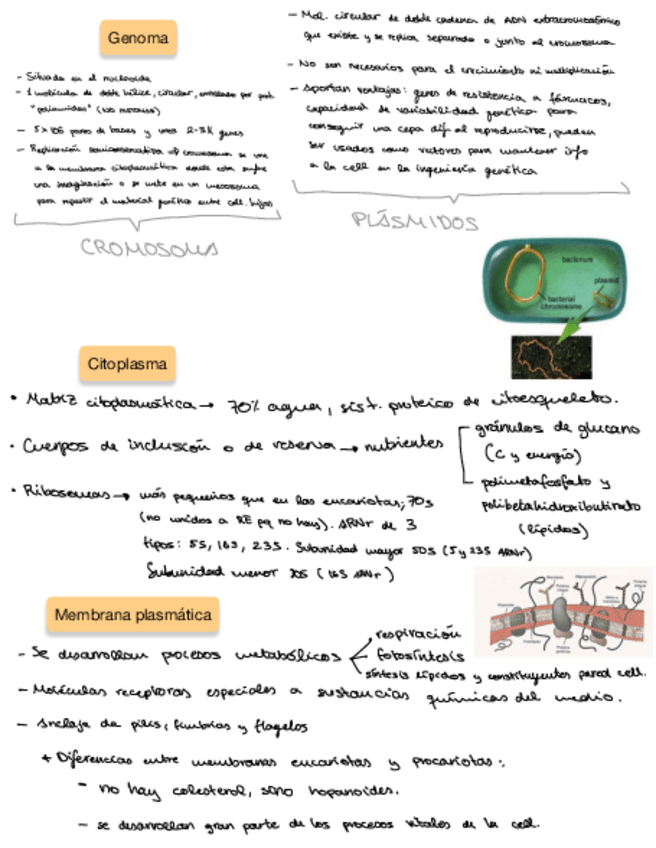 Genoma
- Situado en el nucleoide
- 1 molécula de doble hélice, circular, enrollado por prot.
"poliaminas" (no histonas)
- 5 x 106 pares de bases y unos 2-3K genes
- Replicación semiconservativa el cromosoma se une
a la membrana citoplasmática donde esta sufre
una invaginación o se mete en un mesosoma
para repartir el material genético entre cell. hijas
CROMOSOMA
- Mol. circular de doble cadena de ADN extracromosómico
que existe y se replica separado o junto al cromosoma
- No son necesarios para el crecimiento ni multiplicación
- Aportan ventajas: genes de resistencia a fármacos,
capacidad de variabilidad genética para
conseguir una cepa dif al reproducirse, pueden
ser usados como vectores para mantener info
a la cell en la ingeniería genética
PLÁSMIDOS
bacterium
plasmid
bacterial
chromosome
Citoplasma
• Matriz citoplasmática → 70% agua, sist. proteico de citoesqueleto.
• Cuerpos de inclusión o de reserva → nutrientes
gránulos de glucano
(C y energía)
polimetafosfato y
polibetahidroxibutirato
(lípidos)
• Ribosomas → más pequeños que en las eucariotas; 70s
(no unidos a RE pq no hay). ARNr de 3
tipos: 5S, 16S, 23S. Subunidad mayor 50S (5 y 23S ARNr)
Subunidad menor 30S (16S ARNr)
Membrana plasmática
- Se desarrollan procesos metabólicos
respiración
fotosíntesis
síntesis lípidos y constituyentes pared cell.
- Moléculas receptoras especiales a sustancias químicas del medio.
- Anclaje de pilis, fimbrias y flagelos
+ Diferencias entre membranas eucariotas y procariotas:
- no hay colesterol, sino hopanoides.
- se desarrollan gran parte de los procesos vitales de la cell.